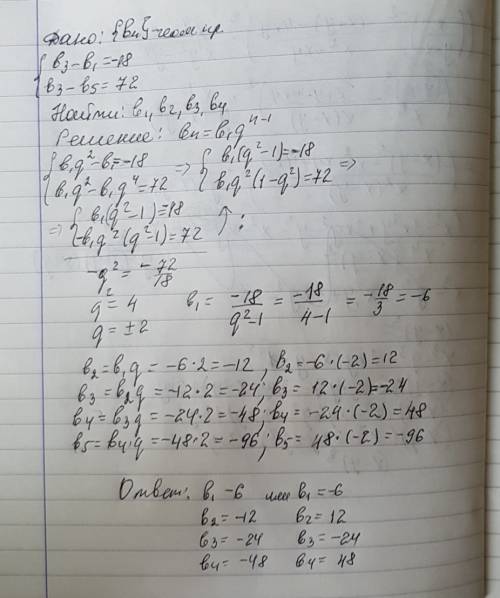 Дано: {bn} - геом пр.
{b3 - b1 = -18
b3 - b5 = 72
Найти: b1, b2, b3, b4
Решение: bn = b1q^(n-1)
{b1q² - b1 = -18 => {b1(q² - 1) = -18
b1q² - b1q⁴ = 72 b1q²(1 - q²) = 72 =>
=> {b1(q² - 1) = 18
-b1q²(q² - 1) = 72 ↑ :
-q² = -72/18
q² = 4 b1 = -18/(q² - 1) = -18/(4 - 1) = -18/3 = -6
q = ±2
b2 = b1q = -6·2 = -12 ; b2 = -6·(-2) = 12
b3 = b2q = -12·2 = -24; b3 = 12·(-2) = -24
b4 = b3q = -24·2 = -48; b4 = -24·(-2) = 48
b5 = b4·q = -48·2 = -96; b5 = 48·(-2) = -96
Ответ: b1 -6 или b1 = -6
b2 = -12 b2 = 12
b3 = -24 b3 = -24
b4 = -48 b4 = 48